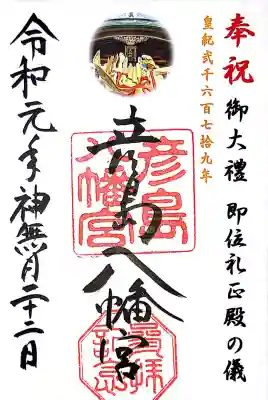 奉祝 御大禮 即位礼正殿の儀
皇紀弐千六百七拾九年
彦島八幡宮
彦島
八幡宮
令和元年神無月二十二日